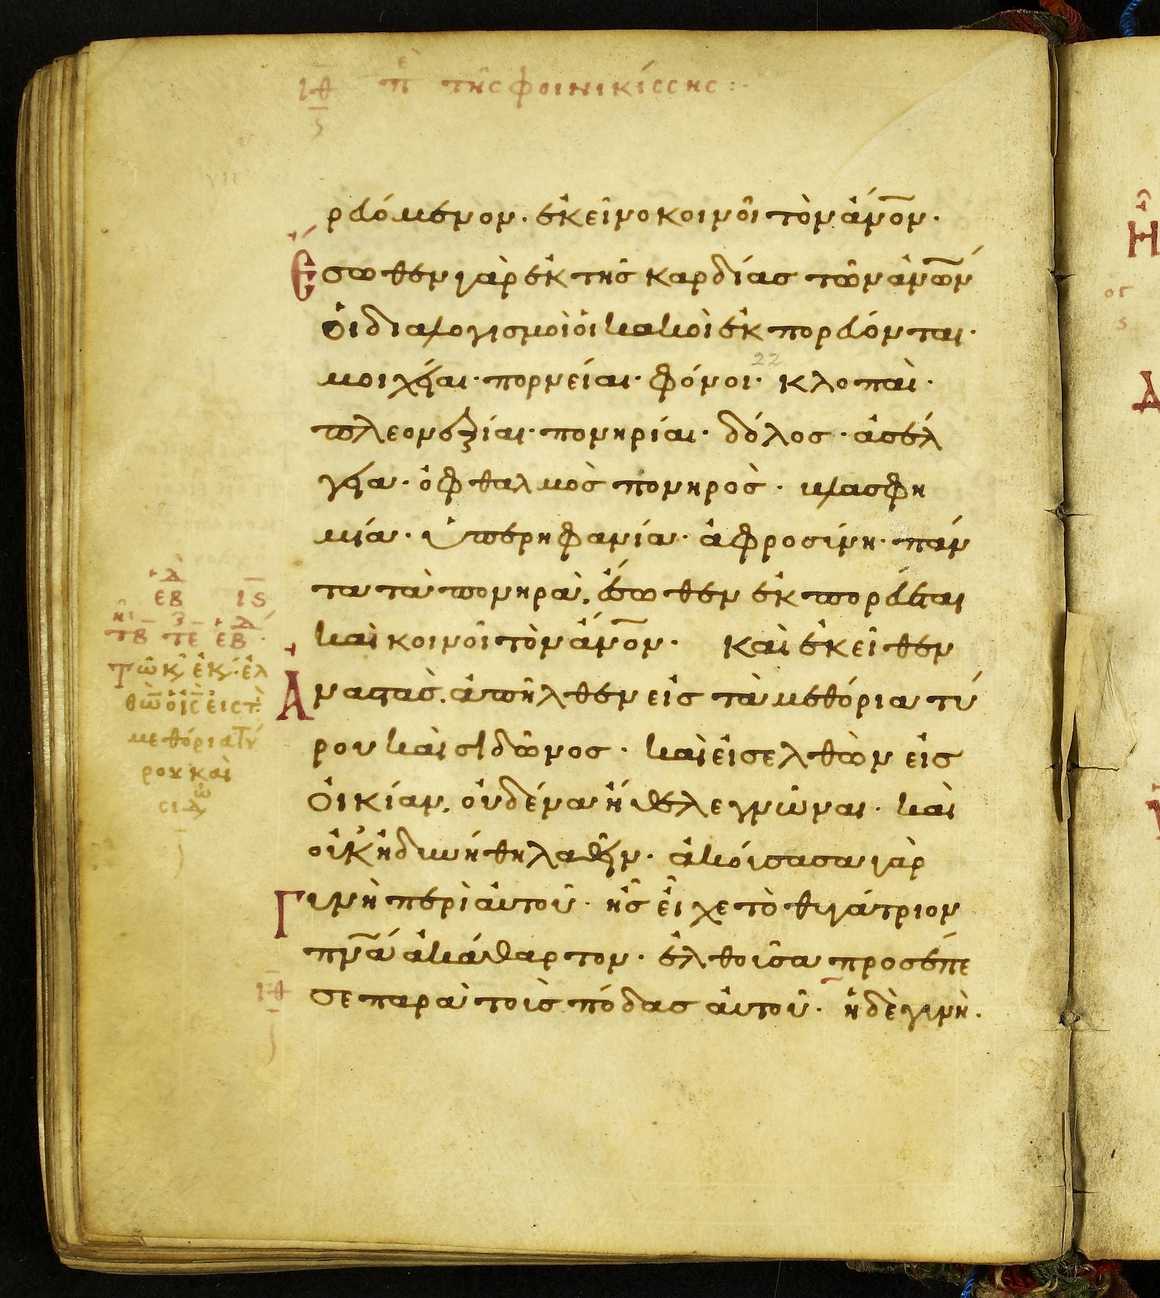 ιθ πε της φοινικίσσης :·
ρευόμενον· ἐκεῖνο κοινοῖ τὸν ἄνον·
Ἔσωθεν γὰρ ἐκ τῆς καρδίας τῶν ἀνων
οἱ διαλογισμοὶ οἱ κακοὶ ἐκπορεύονται·
μοιχεῖαι· πορνείαι· φόνοι· κλοπαὶ·
22
πλεονεξίαι· πονηρίαι· δόλος· ἀσέλ
γεια· ὀφθαλμὸς πονηρὸς· βλασφη
μία· ὑπερηφανία· ἀφροσύνη· πάν
τα τὰ πονηρὰ, ἔσωθεν ἐκπορεύεται
καὶ κοινοῖ τὸν ἄνον· Καὶ ἐκεῖθεν
Ἀναστὰς, ἀπῆλθεν εἰς τὰ μεθόρια τύ
ρου καὶ σιδῶνος· καὶ εἰσελθὼν εἰς
οἰκίαν, οὐδένα ἤθελε γνῶναι· καὶ
οὐκ ἠδυνήθη λαθεῖν· ἀκούσασα γὰρ
Γυνὴ περὶ αὐτοῦ· ἧς εἶχε τὸ θυγάτριον
πνα ἀκάθαρτον· ἐλθοῦσα προσέπε
σε παρὰ τοὺς πόδας αὐτοῦ· ἡ δὲ γυνὴ·
τῶ κ ἐκ ἐλ
θὼν ὁ ις εἰς τὰ
μεθόρια Τύ
ρου καὶ
σιδω
ιθ